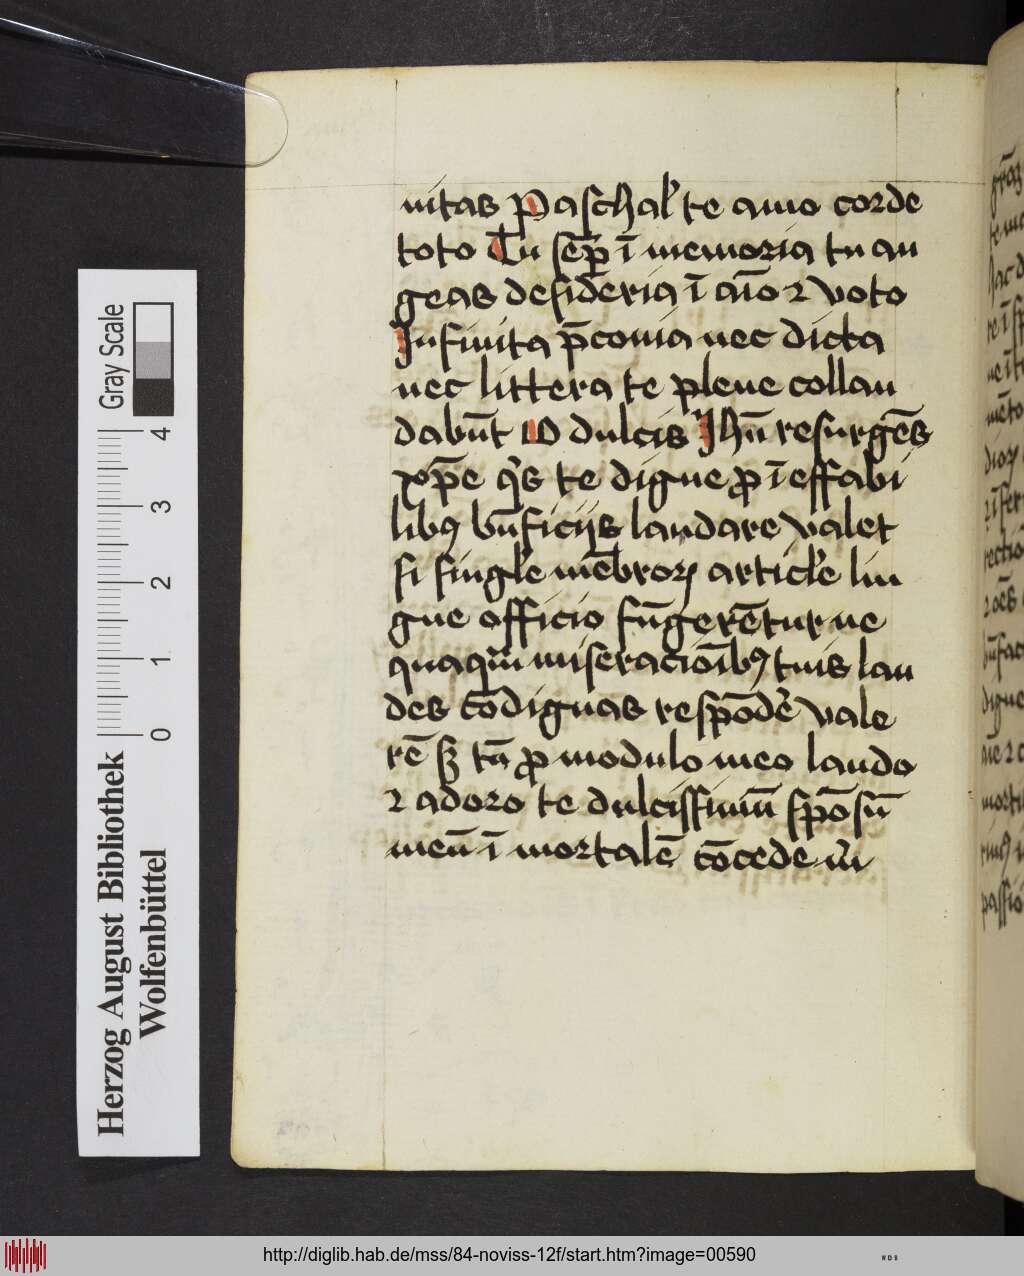 nitas Paschal' te amo corde
toto Tu semp̄ ī memoria tu au
geas desid̄eria ī aīo ⁊ voto
Infinita p̄conia nec dicta
nec littera te plene collau
dabūt O dulcis Jhū resurgēs
xp̄e q's te digne ꝓ īeffabi
libꝰ bn̄ficijs laudare valet
si singl'e mēbroꝝ articl'e lin
gue officio fūgerētur ne
quaq̄m miseracioībꝰ tuis lau
des cōdignas respōdē vale
rē sꝫ tn̄ ꝓ modulo meo laudo
⁊ adoro te dulcissimū spōsū
meū īmortalē cōcede m̄
Herzog August Bibliothek
Wolfenbüttel
0 1 2 3 4
Gray Scale
http://diglib.hab.de/mss/84-noviss-12f/start.htm?image=00590